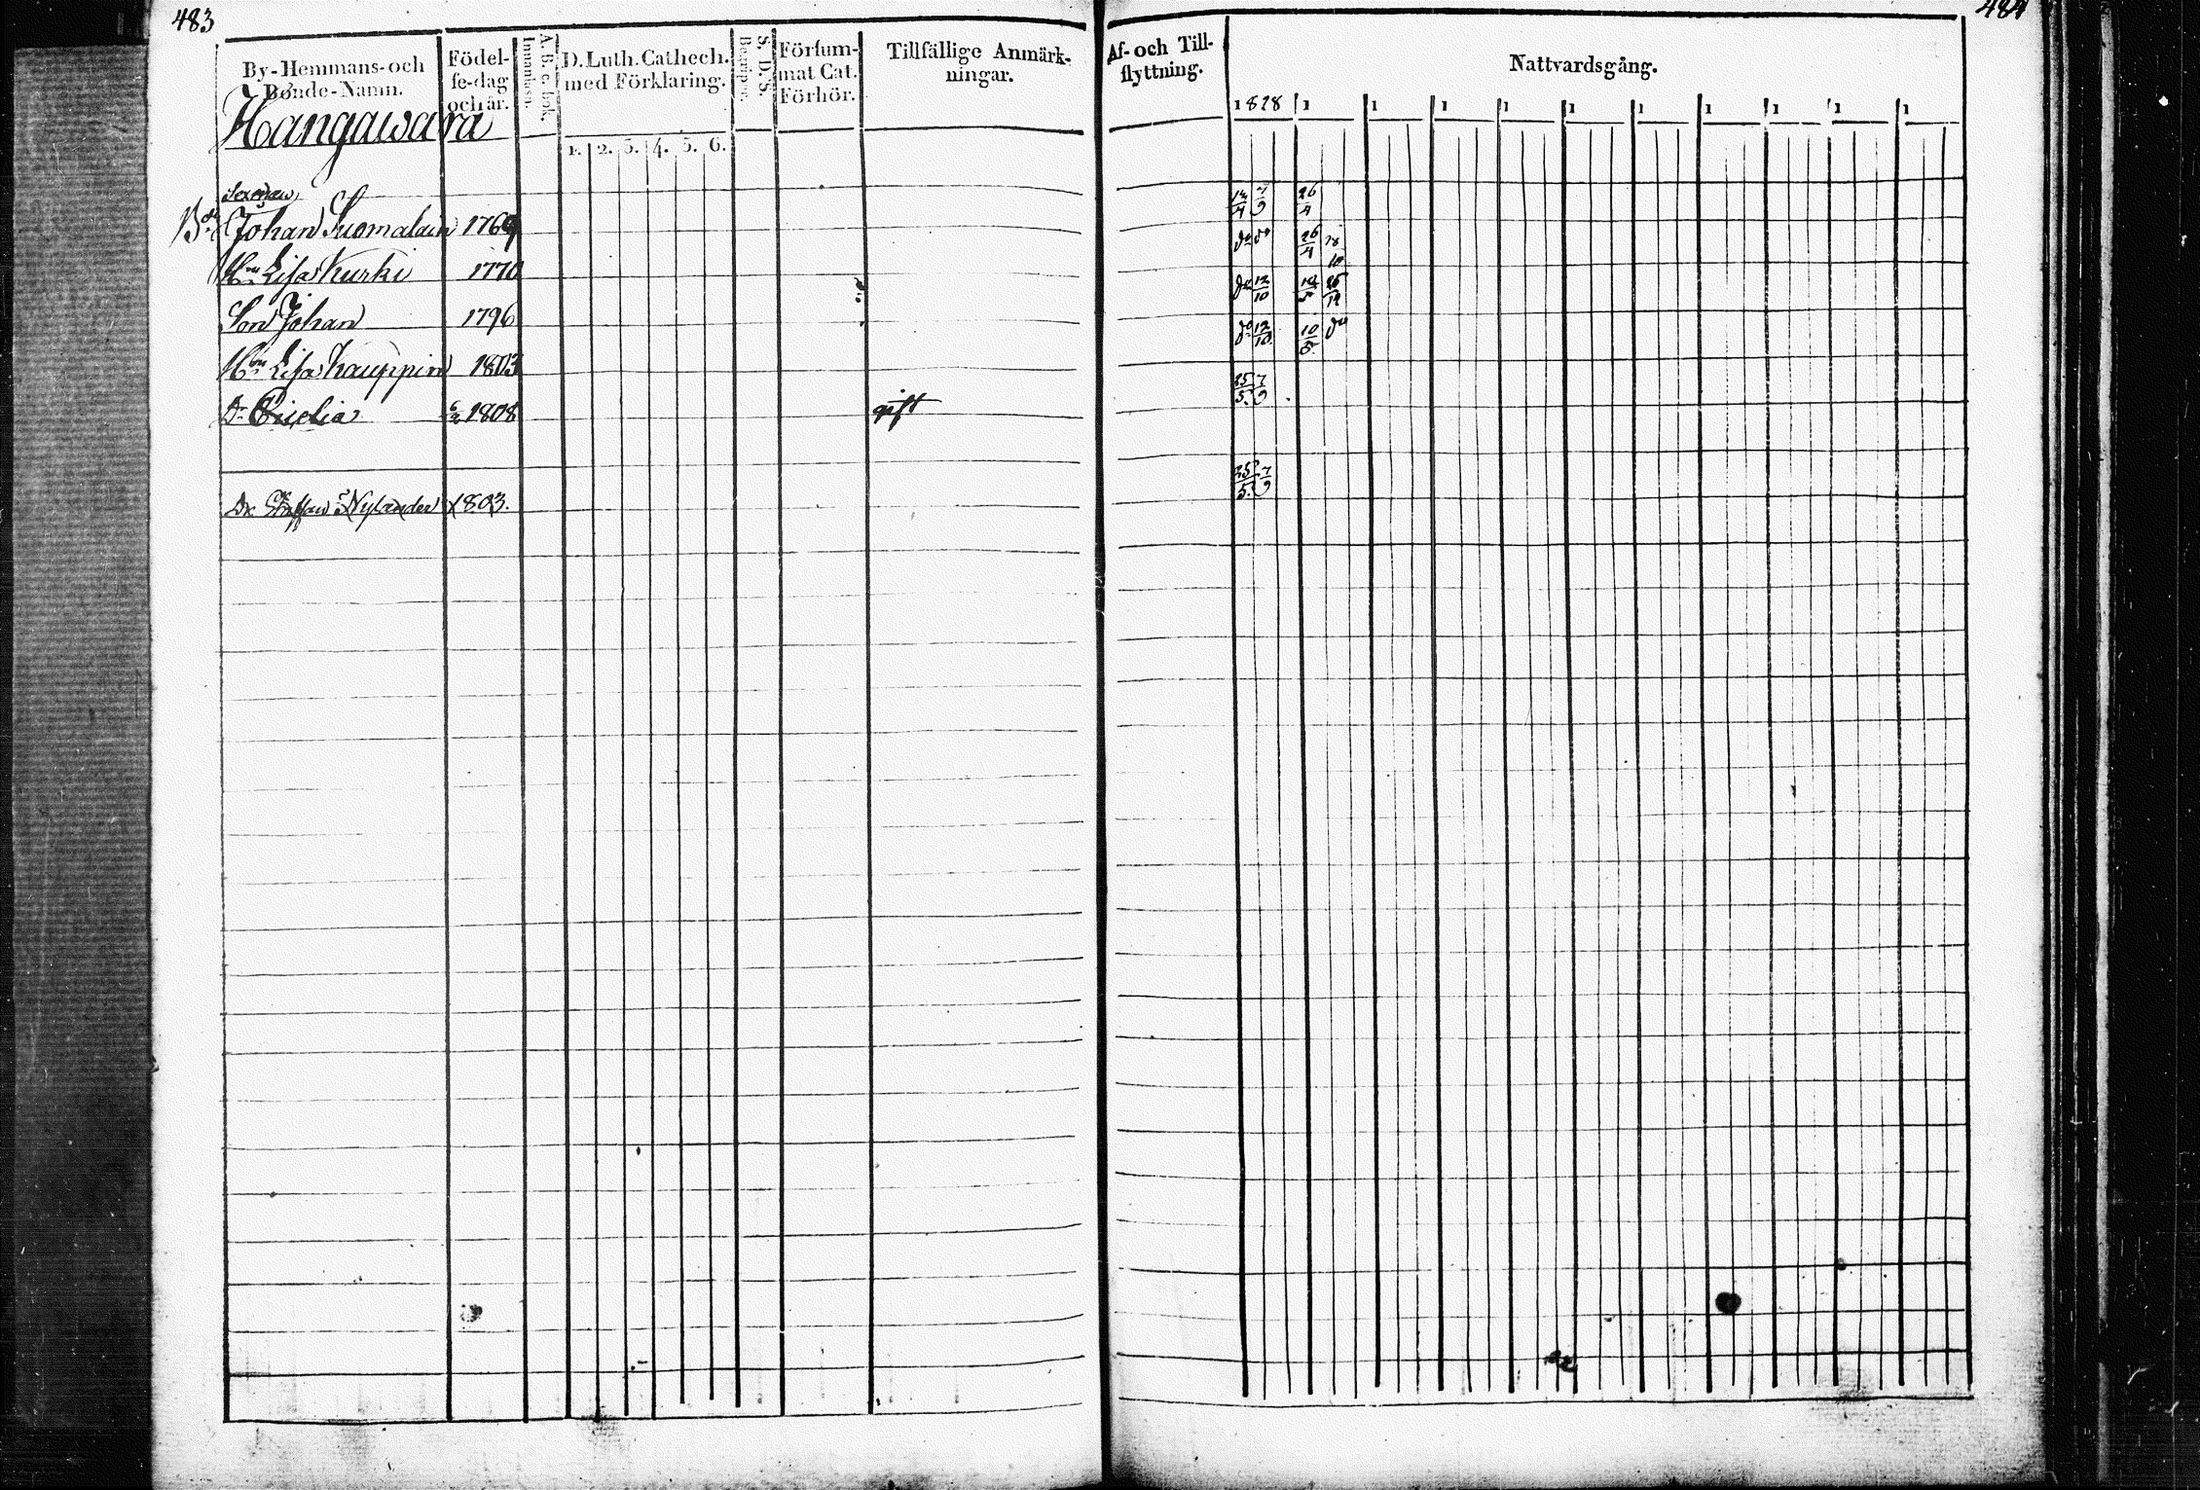 483
By-Hemmans-och
Bonde-Namn.
Födel-
se-dag
och år.
A. B. c. bok.
Innanläsn.
D. Luth. Cathech.
med Förklaring.
1. 2. 3. 4. 5. 6.
S. D. S.
Begripp.
Försum-
mat Cat.
Förhör.
Tillfällige Anmärk-
ningar.
Hangawara
Sexman
Bd. Johan Suomalain 1769
Hu Lisa Kurki 1770
Son Johan 1796
Hu Lisa Kauppin 1803
Dr 1808 gift
Dr. Staffan Nylander 1803.
484
Af- och Till-
flyttning.
Nattvardsgång.
1828 1 1 1 1 1 1 1 1 1 1
14/4 7/9 26/4
do do 26/4
do 12/10 25/12
do 12/10 10/5 do
25/5. 7/9
25/5. 7/9